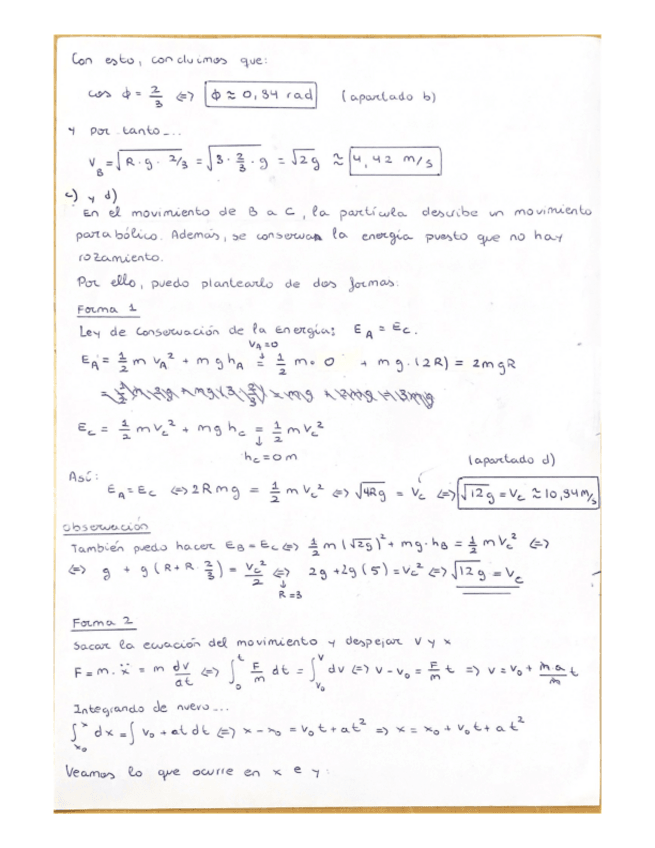 Con esto, concluimos que:
cos φ = 2/3 <=> φ ≈ 0,84 rad (apartado b)
y por tanto...
V_B = √(R·g·2/3) = √(3·2/3·g) = √(2g) ≈ 4,42 m/s
c) y d)
En el movimiento de B a C, la partícula describe un movimiento
parabólico. Además, se conservan la energía puesto que no hay
rozamiento.
Por ello, puedo plantearlo de dos formas.
Forma 1
Ley de conservación de la energía: E_A = E_C.
V_A=0
E_A = 1/2 m V_A² + m g h_A = 1/2 m · 0 + m g · (2R) = 2mgR
E_C = 1/2 m V_C² + m g h_C = 1/2 m V_C²
h_C = 0 m
(apartado d)
Así:
E_A = E_C <=> 2Rmg = 1/2 m V_C² <=> √(4Rg) = V_C <=> √(12g) = V_C ≈ 10,84 m/s
Observación
También puedo hacer E_B = E_C <=> 1/2 m (√(2g))² + mg·h_B = 1/2 m V_C² <=>
<=> g + g (R + R · 2/3) = V_C²/2 <=> 2g + 2g (5) = V_C² <=> √(12g) = V_C
R=3
Forma 2
Sacar la ecuación del movimiento y despejar v y x
F = m·ẍ = m dv/dt <=> ∫₀ᵗ F/m dt = ∫_{v₀}^{v} dv <=> v - v₀ = F/m t => v = v₀ + m a/m t
Integrando de nuevo...
∫_{x₀}^{x} dx = ∫ v₀ + at dt <=> x - x₀ = v₀t + at² => x = x₀ + v₀t + at²
Veamos lo que ocurre en x e y: